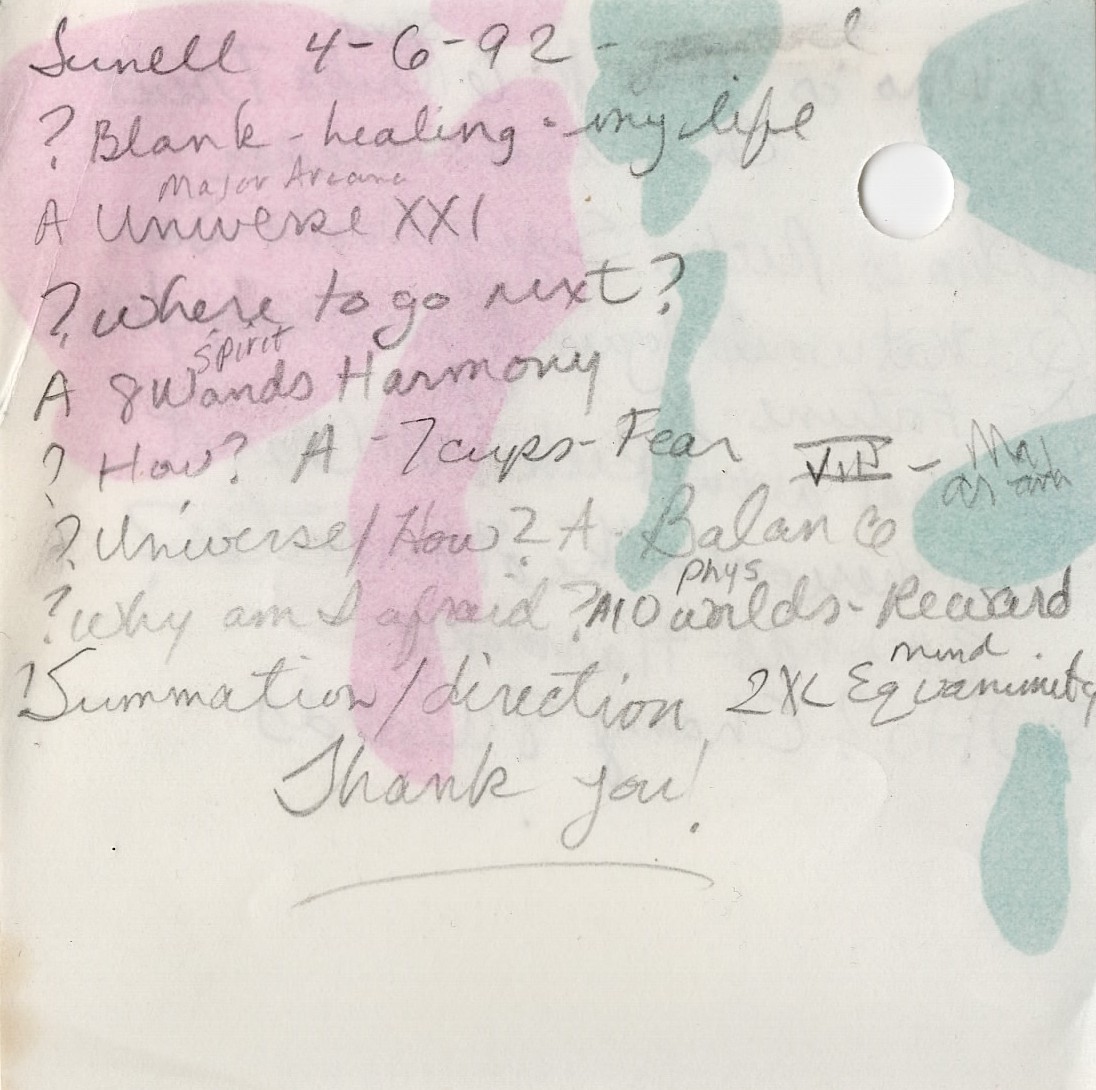 Sunell 4-6-92 -
? Blank - healing - my life
Major Arcana
A Universe XXI
? Where to go next?
spirit
A 8 Wands Harmony
? How? A - 7 cups - Fear VIII - Maj
arcana
? Universe / How? A - Balance
phys
? Why am I afraid? A 10 worlds - Reward
mind
? Summation / direction 2 XL Equanimity
Thank you!